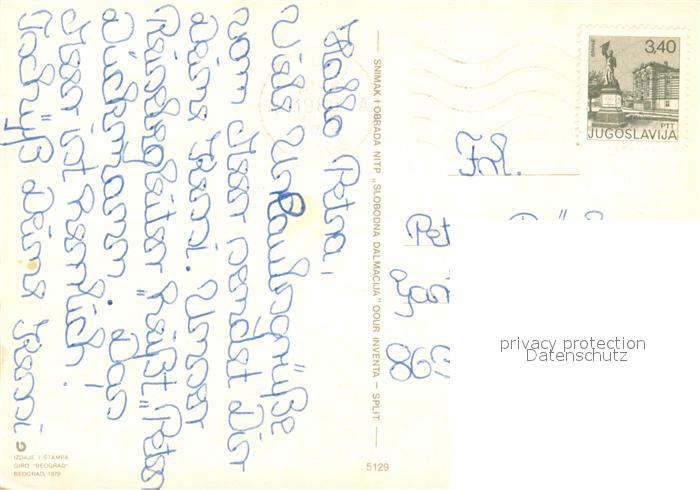 Hallo Petra,
Viele Urlaubsgrüße
vom Meer sendet Dir
Deine Henni. Unser
Reisebegleiter heißt "Peter
Dieckmann". Das
Meer ist herrlich.
Tschüß Deine Henni
SNIMAK I OBRADA NITP „SLOBODNA DALMACIJA" OOUR INVENTA — SPLIT
3,40
PTT
JUGOSLAVIJA
Frl.
Pet
Gar
863
privacy protection
Datenschutz
IZDAJE I ŠTAMPA
GIRO "BEOGRAD"
BEOGRAD, 1979
5129